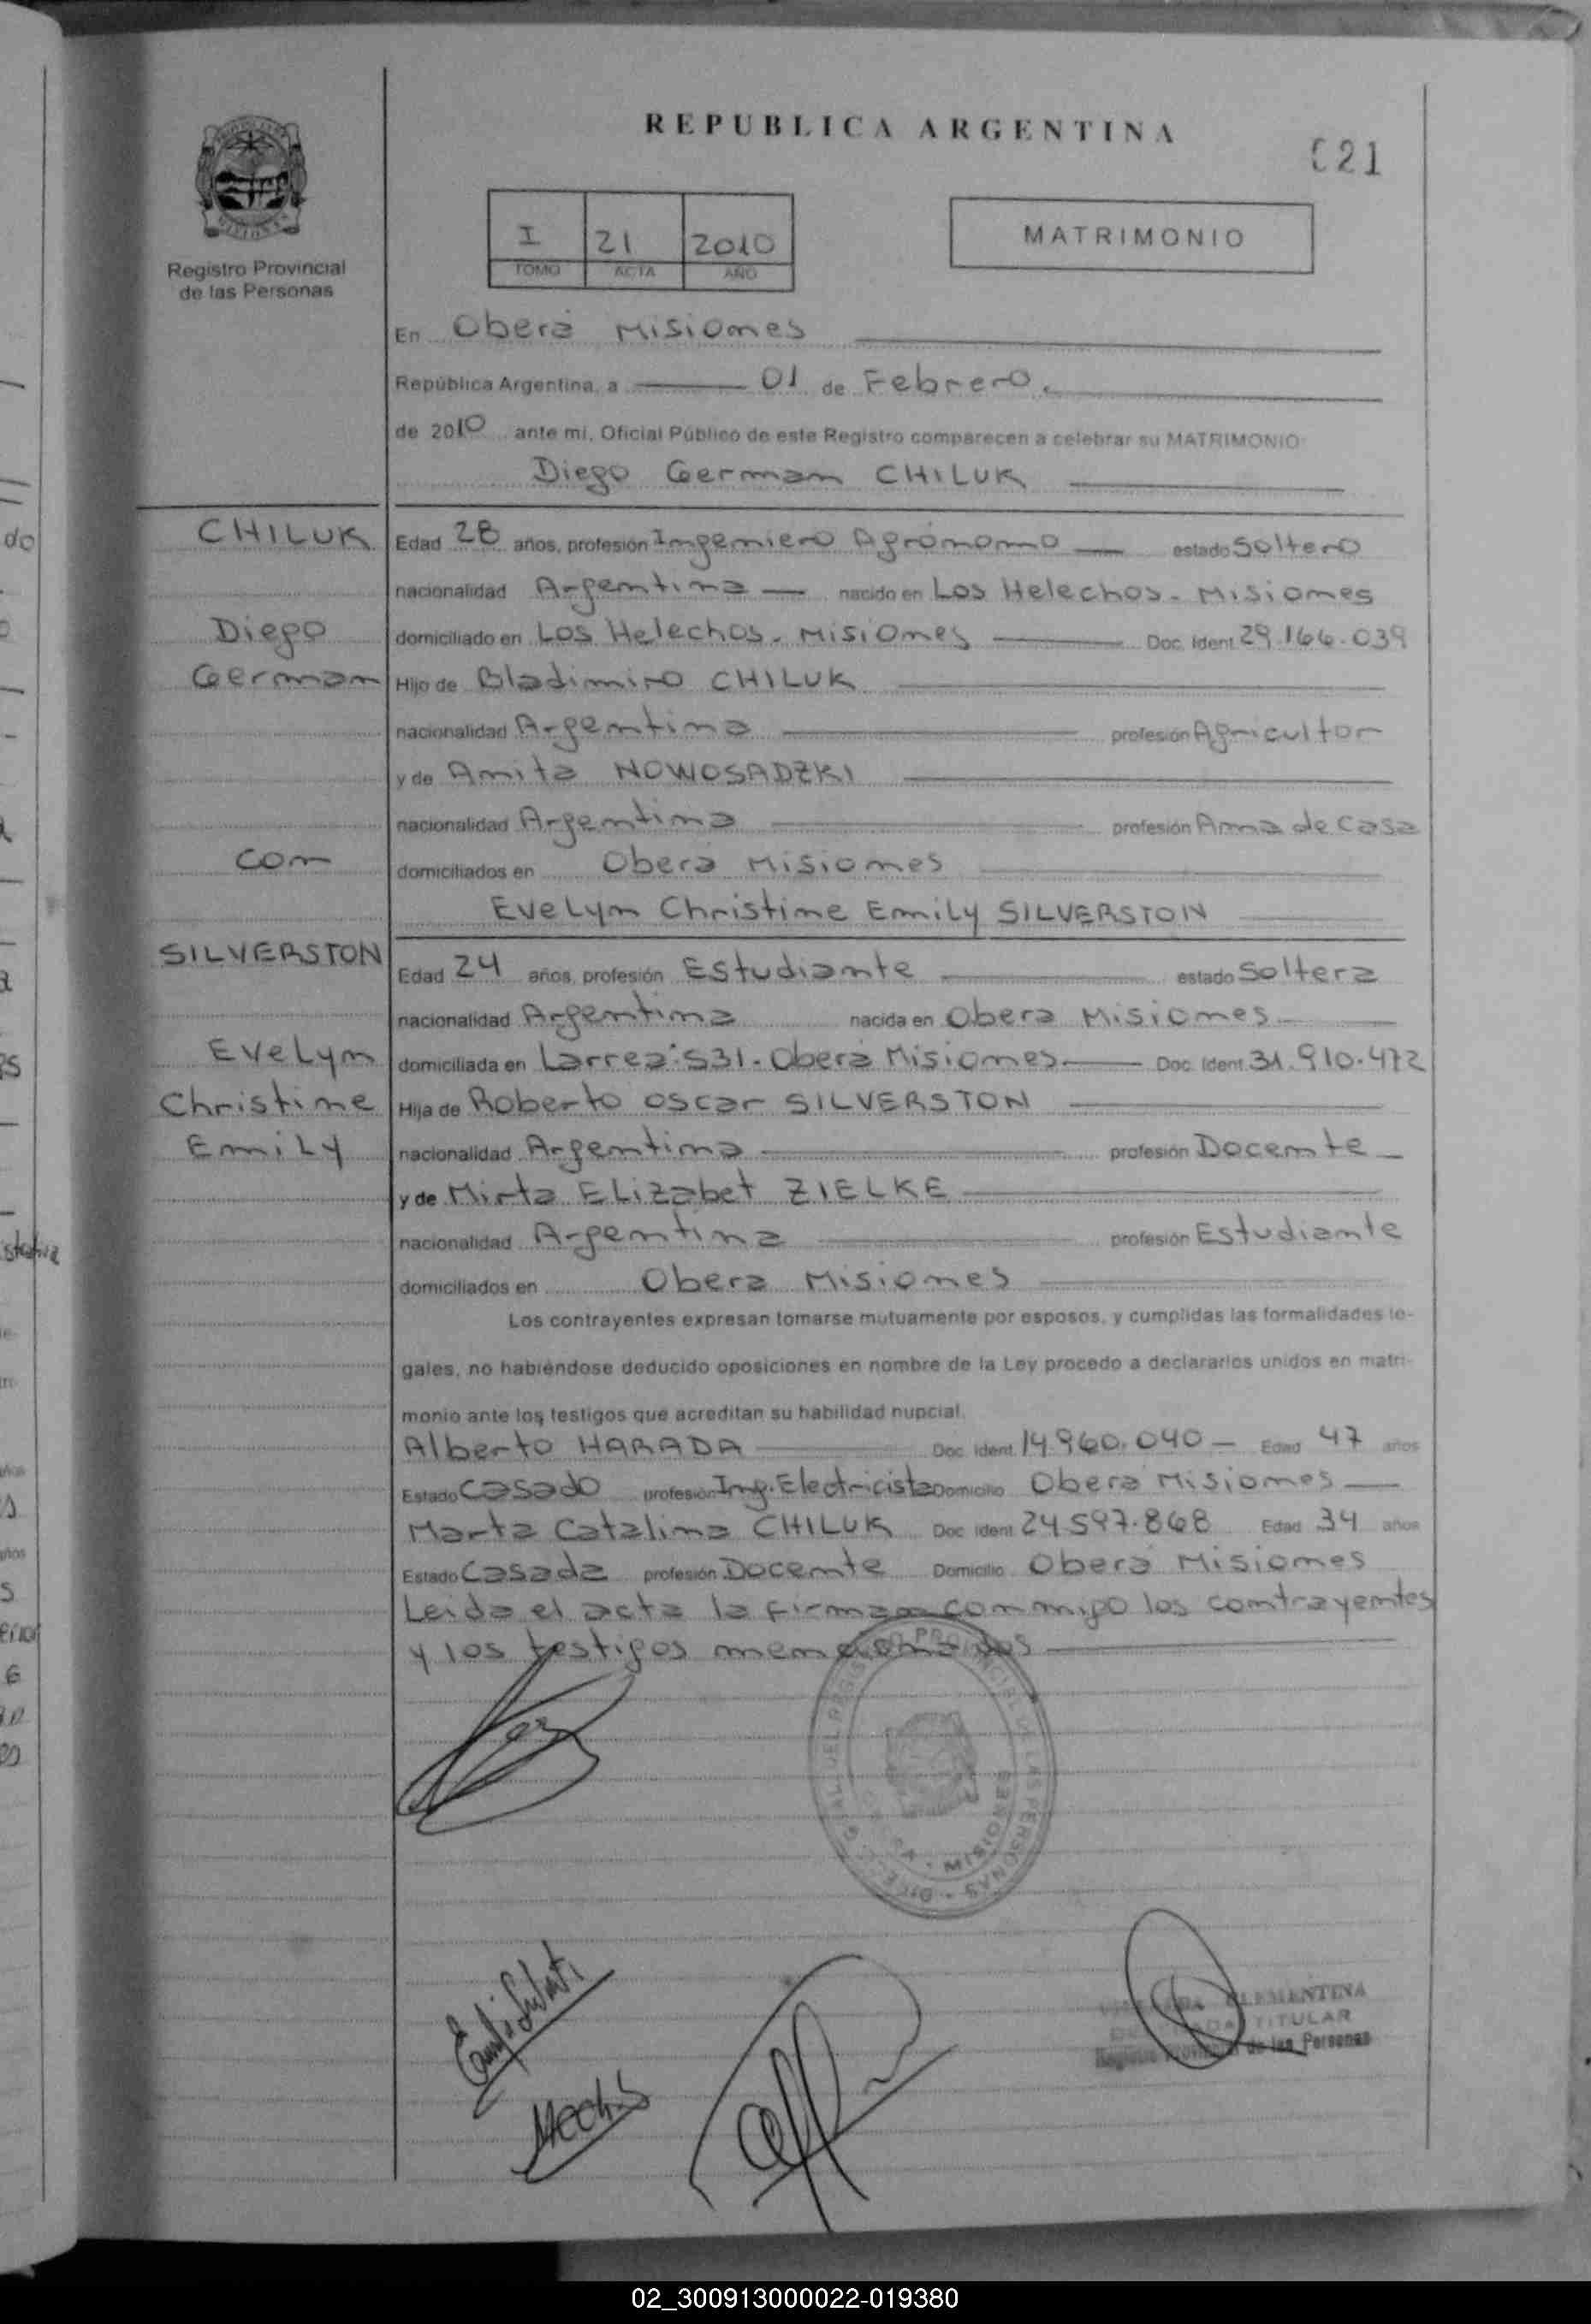 REPUBLICA ARGENTINA
021
Registro Provincial
de las Personas
I 21 2010
TOMO ACTA AÑO
MATRIMONIO
En Oberá Misiones
República Argentina, a 01 de Febrero
de 2010 ante mi, Oficial Público de este Registro comparecen a celebrar su MATRIMONIO:
Diego German CHILUK
CHILUK
Diego
German
con
Edad 28 años, profesión Ingeniero Agrónomo estado Soltero
nacionalidad Argentina nacido en Los Helechos - Misiones
domiciliado en Los Helechos - Misiones Doc. Ident. 29.166.039
Hijo de Bladimiro CHILUK
nacionalidad Argentina profesión Agricultor
y de Anita NOWOSADZKI
nacionalidad Argentina profesión Ama de Casa
domiciliados en Oberá Misiones
Evelyn Christine Emily SILVERSTON
SILVERSTON
Evelyn
Christine
Emily
Edad 24 años, profesión Estudiante estado Soltera
nacionalidad Argentina nacida en Obera Misiones
domiciliada en Larrea 531 - Oberá Misiones Doc. Ident. 31.910.472
Hija de Roberto Oscar SILVERSTON
nacionalidad Argentina profesión Docente
y de Mirta Elizabet ZIELKE
nacionalidad Argentina profesión Estudiante
domiciliados en Obera Misiones
Los contrayentes expresan tomarse mutuamente por esposos, y cumplidas las formalidades le-
gales, no habiéndose deducido oposiciones en nombre de la Ley procedo a declararlos unidos en matri-
monio ante los testigos que acreditan su habilidad nupcial.
Alberto HARADA Doc. Ident. 14.960.040 Edad 47 años
Estado Casado profesión Ing. Electricista Domicilio Oberá Misiones
Marta Catalina CHILUK Doc. Ident. 24.597.868 Edad 34 años
Estado Casada profesión Docente Domicilio Oberá Misiones
Leida el acta la firman conmigo los contrayentes
y los testigos mencionados
MISIONES
CLEMENTINA
TITULAR
de las Personas
02_300913000022-019380